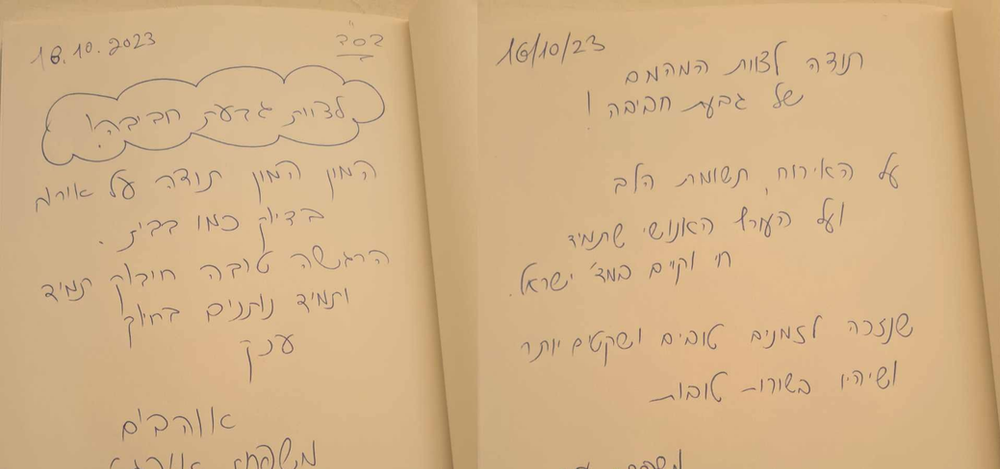 בס״ד
18.10.2023
לצוות גבעת חביבה!
המון המון תודה על אירוח
בדיוק כמו בבית.
הרגשה טובה חיבוק תמיד
ותמיד נותנים בחיוך
ענק
אוהבים
משפחת
16/10/23
תודה לצוות המהמם
של גבעת חביבה!
על האירוח, תשומת הלב
ועל העורף האנושי שתמיד
חי וקיים במד' ישראל.
שנזכה לזמנים טובים ושקטים יותר
ושיהיו בשורות טובות
משפחת